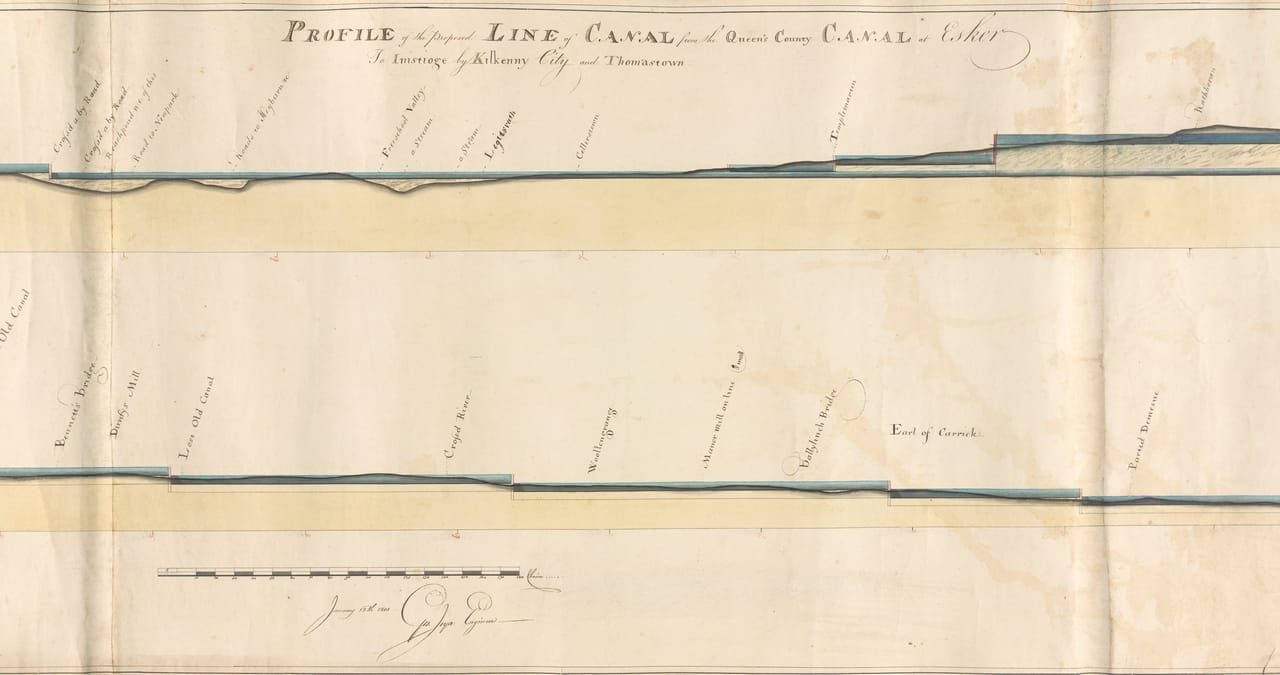 PROFILE of the Proposed LINE of CANAL from the Queen's County CANAL at Esker
To Inistioge by Kilkenny City and Thomastown
Croſsd a by Road
Croſsd a by Road
Road to Newpark
Roads to
Freschool Valley
a Stream
a Stream
Cellerstown
Templemartin
Rathboran
Old Canal
Bennett's Bridge
Mill
Old Canal
Croſsd River
Woollengrange
Manor Mill on line
Ballylinch Bridge
Earl of Carrick
Demesne
Chains
January
Engineer